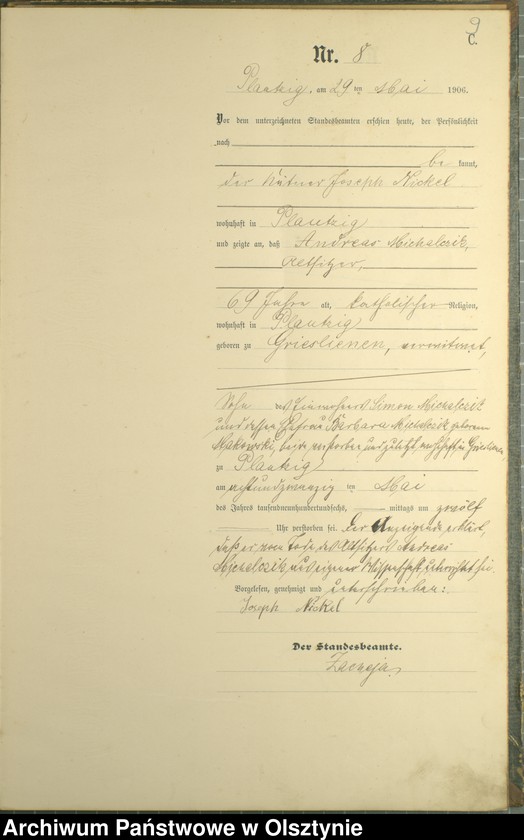 9
C.
Nr. 8
Plautzig, am 29 ten Mai 1906.
Vor dem unterzeichneten Standesbeamten erschien heute, der Persönlichkeit
nach
be kannt,
der Kätner Joseph Nickel
wohnhaft in Plautzig
und zeigte an, daß Andreas Michalczik,
Altsitzer,
69 Jahre alt, katholischer Religion,
wohnhaft in Plautzig
geboren zu Grieslienen, verwitwet,
Sohn des Einwohners Simon Michalczik
und dessen Ehefrau Barbara Michalczik geborenen
beide verstorben und zuletzt wohnhaft in Grieslienen,
zu Plautzig
am achtundzwanzig ten Mai
des Jahres tausendneunhundertundsechs, mittags um zwölf
Uhr verstorben sei. Der Anzeigende erklärt,
daß er von Tode des Altsitzers Andreas
Michalczik aus eigener Wissenschaft unterrichtet sei.
Vorgelesen, genehmigt und unterschrieben:
Joseph Nickel
Der Standesbeamte.
Archiwum Państwowe w Olsztynie